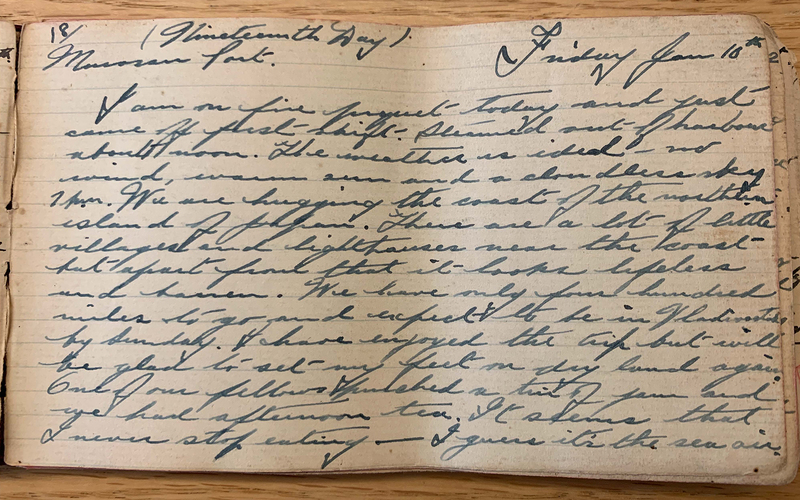 18/ (Nineteenth Day) Friday Jan 10th
Muroran Port.
I am on fire piquet today and just
came off first shift. Steamed out of harbour
about noon. The weather is ideal - no
wind, warm sun and a cloudless sky
7 p.m. We are hugging the coast of the northern
island of Japan. There are a lot of little
villages and lighthouses near the coast
but apart from that it looks lifeless
and barren. We have only four hundred
miles to go and expect to be in Vladivostok
by Sunday. I have enjoyed the trip but will
be glad to set my feet on dry land again
One of our fellows pinched a tin of jam and
we had afternoon tea. It seems that
I never stop eating — I guess it's the sea air.